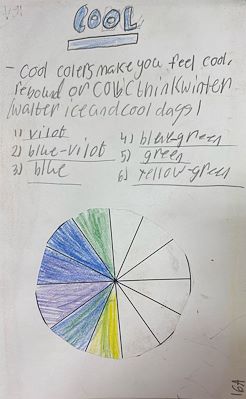 COOL
- Cool colers make you feel cool,
rebound or cold (think winter
/walter ice and cool days!
1) vilot
2) blue-vilot
3) blue
4) blue-green
5) green
6) yellow-green
16A